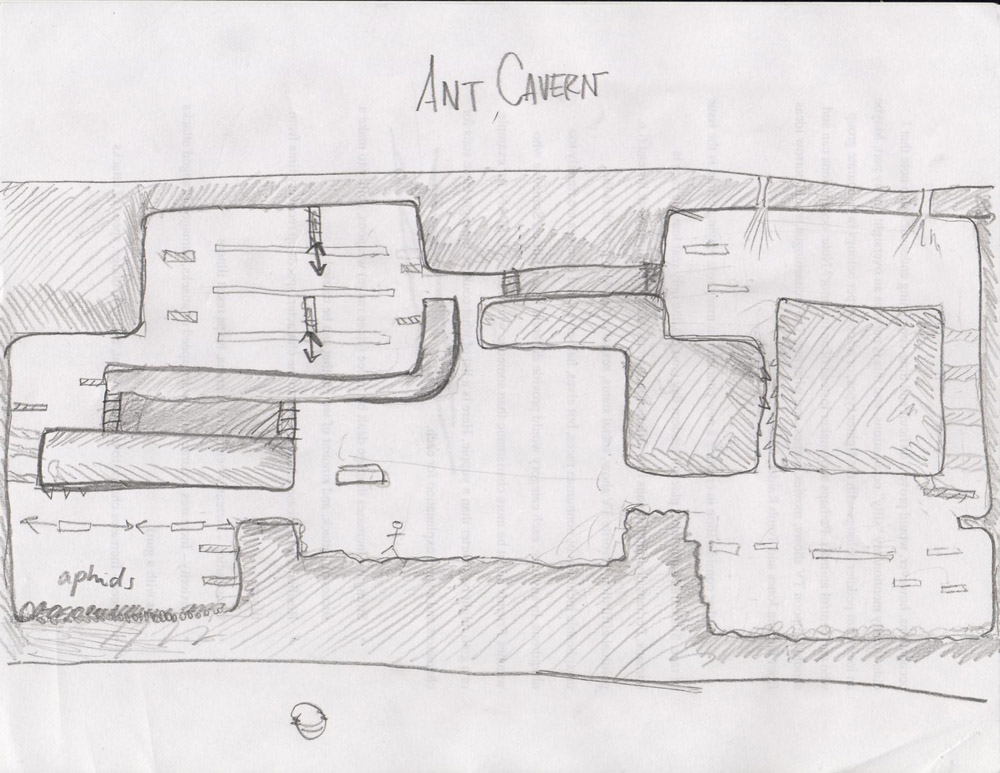 ANT CAVERN
aphids